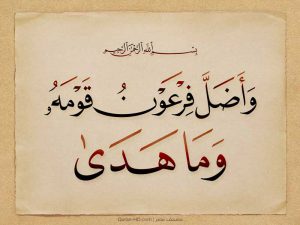 بسم الله الرحمن الرحيم
وَأَضَلَّ فِرْعَوْنُ قَوْمَهُۥ
وَمَا هَدَىٰ
Quran-HD.com | مصحف نشر